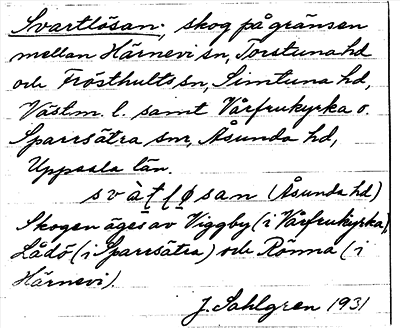 Svartlösan, skog på gränsen
mellan Härnevi sn, Torstuna hd
och Frösthults sn, Simtuna hd,
Västm. l. samt Vårfrukyrka o.
Sparrsätra snr, Åsunda hd,
Uppsala län.
svàṭḷø̣san (Åsunda hd)
Skogen äges av Viggby (i Vårfrukyrka),
Lådö (i Sparrsätra) och Römna (i
Härnevi).
J. Sahlgren 1931